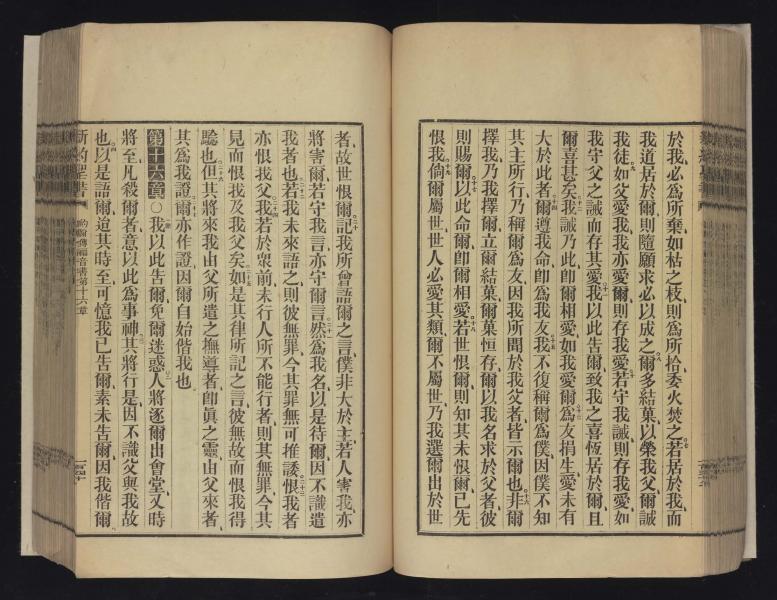 於我必爲所棄如枯之枝則爲所拾委火焚之若居於我而
我道居於爾則隨願求必以成之爾多結菓以榮我父爾誠
我徒如父愛我我亦愛爾則存我愛若守我誡則存我愛如
我守父之誡而存其愛我以此告爾致我之喜恆居於爾且
爾喜甚矣我誡乃此卽爾相愛如我愛爾爲友捐生愛未有
大於此者爾遵我命卽爲我友我不復稱爾爲僕因僕不知
其主所行乃稱爾爲友因我所聞於我父者皆示爾也非爾
擇我乃我擇爾立爾結菓爾菓恒存爾以我名求於父者彼
則賜爾以此命爾卽爾相愛若世恨爾則知其未恨爾已先
恨我倘爾屬世世人必愛其類爾不屬世乃我選爾出於世
者故世恨爾記我所曾語爾之言僕非大於主若人害我亦
將害爾若守我言亦守爾言然爲我名以是待爾因不識遣
我者也若我未來語之則彼無罪今其罪無可推諉恨我者
亦恨我父我若於衆前未行人所不能行者則其無罪今其
見而恨我及我父矣如是其律所記之言彼無故而恨我得
驗也但其將來我由父所遣之撫導者卽眞之靈由父來者
其爲我證爾亦作證因爾自始偕我也
第十六章 我以此告爾免爾迷惑人將逐爾出會堂又時
將至凡殺爾者意以此爲事神其將行是因不識父與我故
也以是語爾迨其時至可憶我已告爾素未告爾因我偕爾
新約聖書 約翰傳福音書第十六章